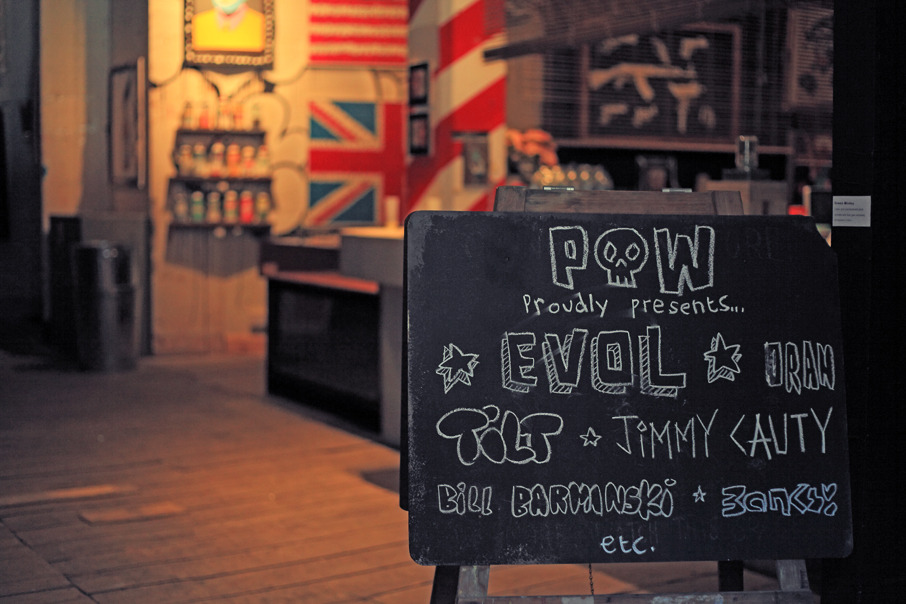 POW
Proudly presents...
EVOL DRAN
TiLT JiMMY CAUTY
BiLL BARMANSKi BANKSY
etc.